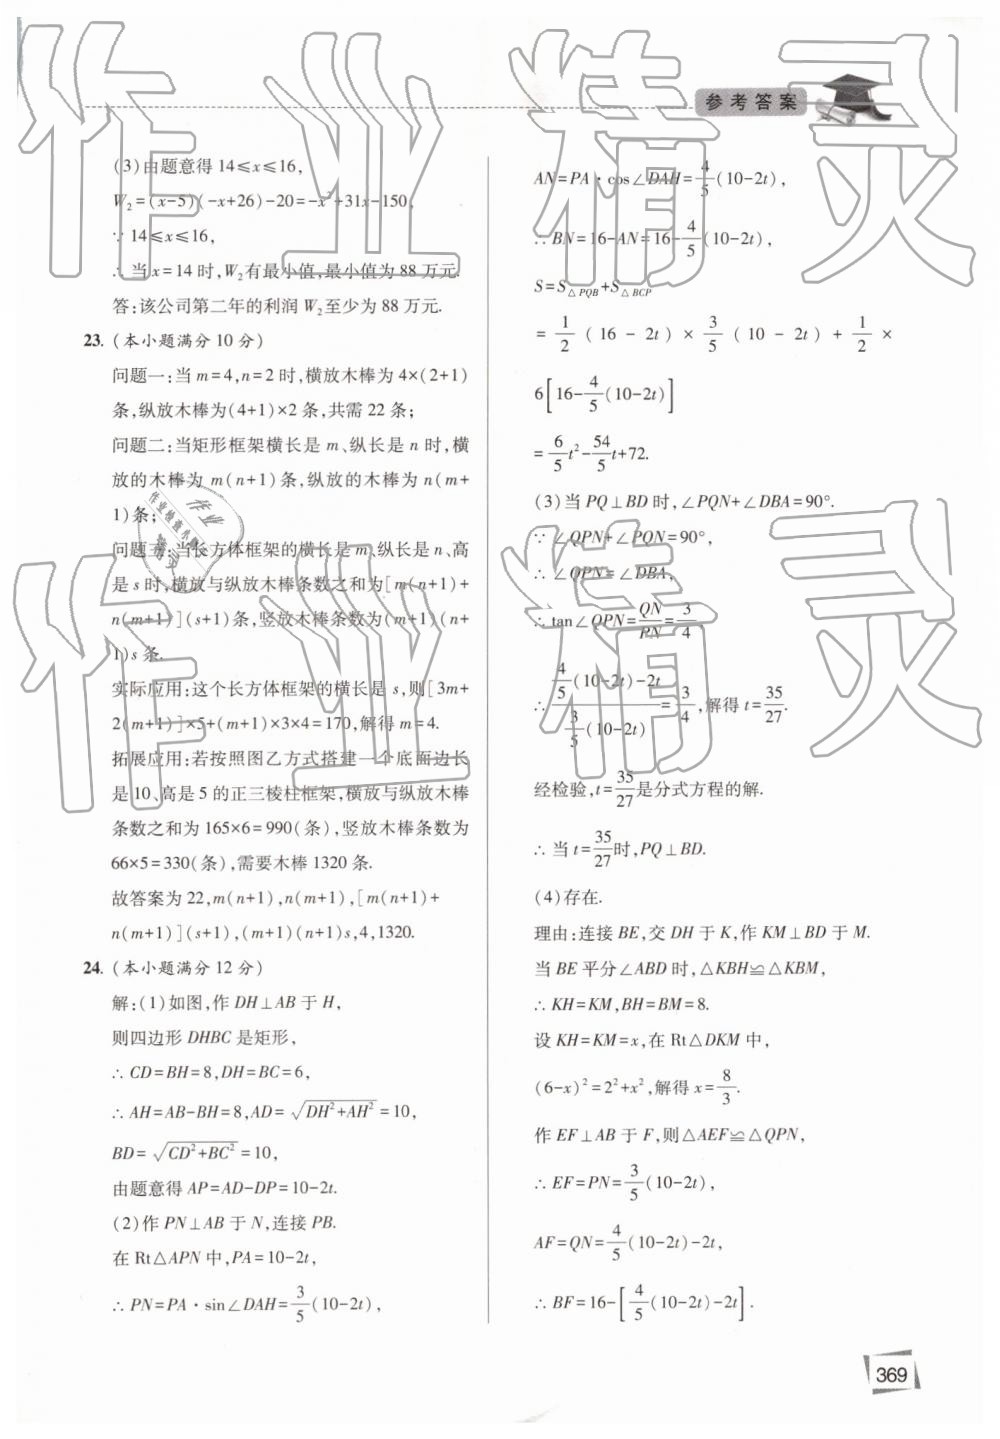 参考答案
(3)由题意得14≤x≤16,
W₂=(x-5)(-x+26)-20=-x²+31x-150,
∵14≤x≤16,
∴当x=14时,W₂有最小值,最小值为88万元.
答:该公司第二年的利润W₂至少为88万元.
23.(本小题满分10分)
问题一:当m=4,n=2时,横放木棒为4×(2+1)
条,纵放木棒为(4+1)×2条,共需22条;
问题二:当矩形框架横长是m、纵长是n时,横
放的木棒为m(n+1)条,纵放的木棒为n(m+
1)条;
问题三:当长方体框架的横长是m、纵长是n、高
是s时,横放与纵放木棒条数之和为[m(n+1)+
n(m+1)](s+1)条,竖放木棒条数为(m+1)(n+
1)s条.
实际应用:这个长方体框架的横长是s,则[3m+
2(m+1)]×5+(m+1)×3×4=170,解得m=4.
拓展应用:若按照图乙方式搭建一个底面边长
是10、高是5的正三棱柱框架,横放与纵放木棒
条数之和为165×6=990(条),竖放木棒条数为
66×5=330(条),需要木棒1320条.
故答案为22,m(n+1),n(m+1),[m(n+1)+
n(m+1)](s+1),(m+1)(n+1)s,4,1320.
24.(本小题满分12分)
解:(1)如图,作DH⊥AB于H,
则四边形DHBC是矩形,
∴CD=BH=8,DH=BC=6,
∴AH=AB-BH=8,AD=√(DH²+AH²)=10,
BD=√(CD²+BC²)=10,
由题意得AP=AD-DP=10-2t.
(2)作PN⊥AB于N,连接PB.
在Rt△APN中,PA=10-2t,
∴PN=PA·sin∠DAH=3/5(10-2t),
AN=PA·cos∠DAH=4/5(10-2t),
∴BN=16-AN=16-4/5(10-2t),
S=S△PQB+S△BCP
=1/2(16-2t)×3/5(10-2t)+1/2×
6[16-4/5(10-2t)]
=6/5t²-54/5t+72.
(3)当PQ⊥BD时,∠PQN+∠DBA=90°.
∵∠QPN+∠PQN=90°,
∴∠QPN=∠DBA,
∴tan∠QPN=QN/PN=3/4
∴(4/5(10-2t)-2t)/(3/5(10-2t))=3/4,解得t=35/27.
经检验,t=35/27是分式方程的解.
∴当t=35/27时,PQ⊥BD.
(4)存在.
理由:连接BE,交DH于K,作KM⊥BD于M.
当BE平分∠ABD时,△KBH≌△KBM,
∴KH=KM,BH=BM=8.
设KH=KM=x,在Rt△DKM中,
(6-x)²=2²+x²,解得x=8/3.
作EF⊥AB于F,则△AEF≌△QPN,
∴EF=PN=3/5(10-2t),
AF=QN=4/5(10-2t)-2t,
∴BF=16-[4/5(10-2t)-2t].
369
作业精灵
作业精灵